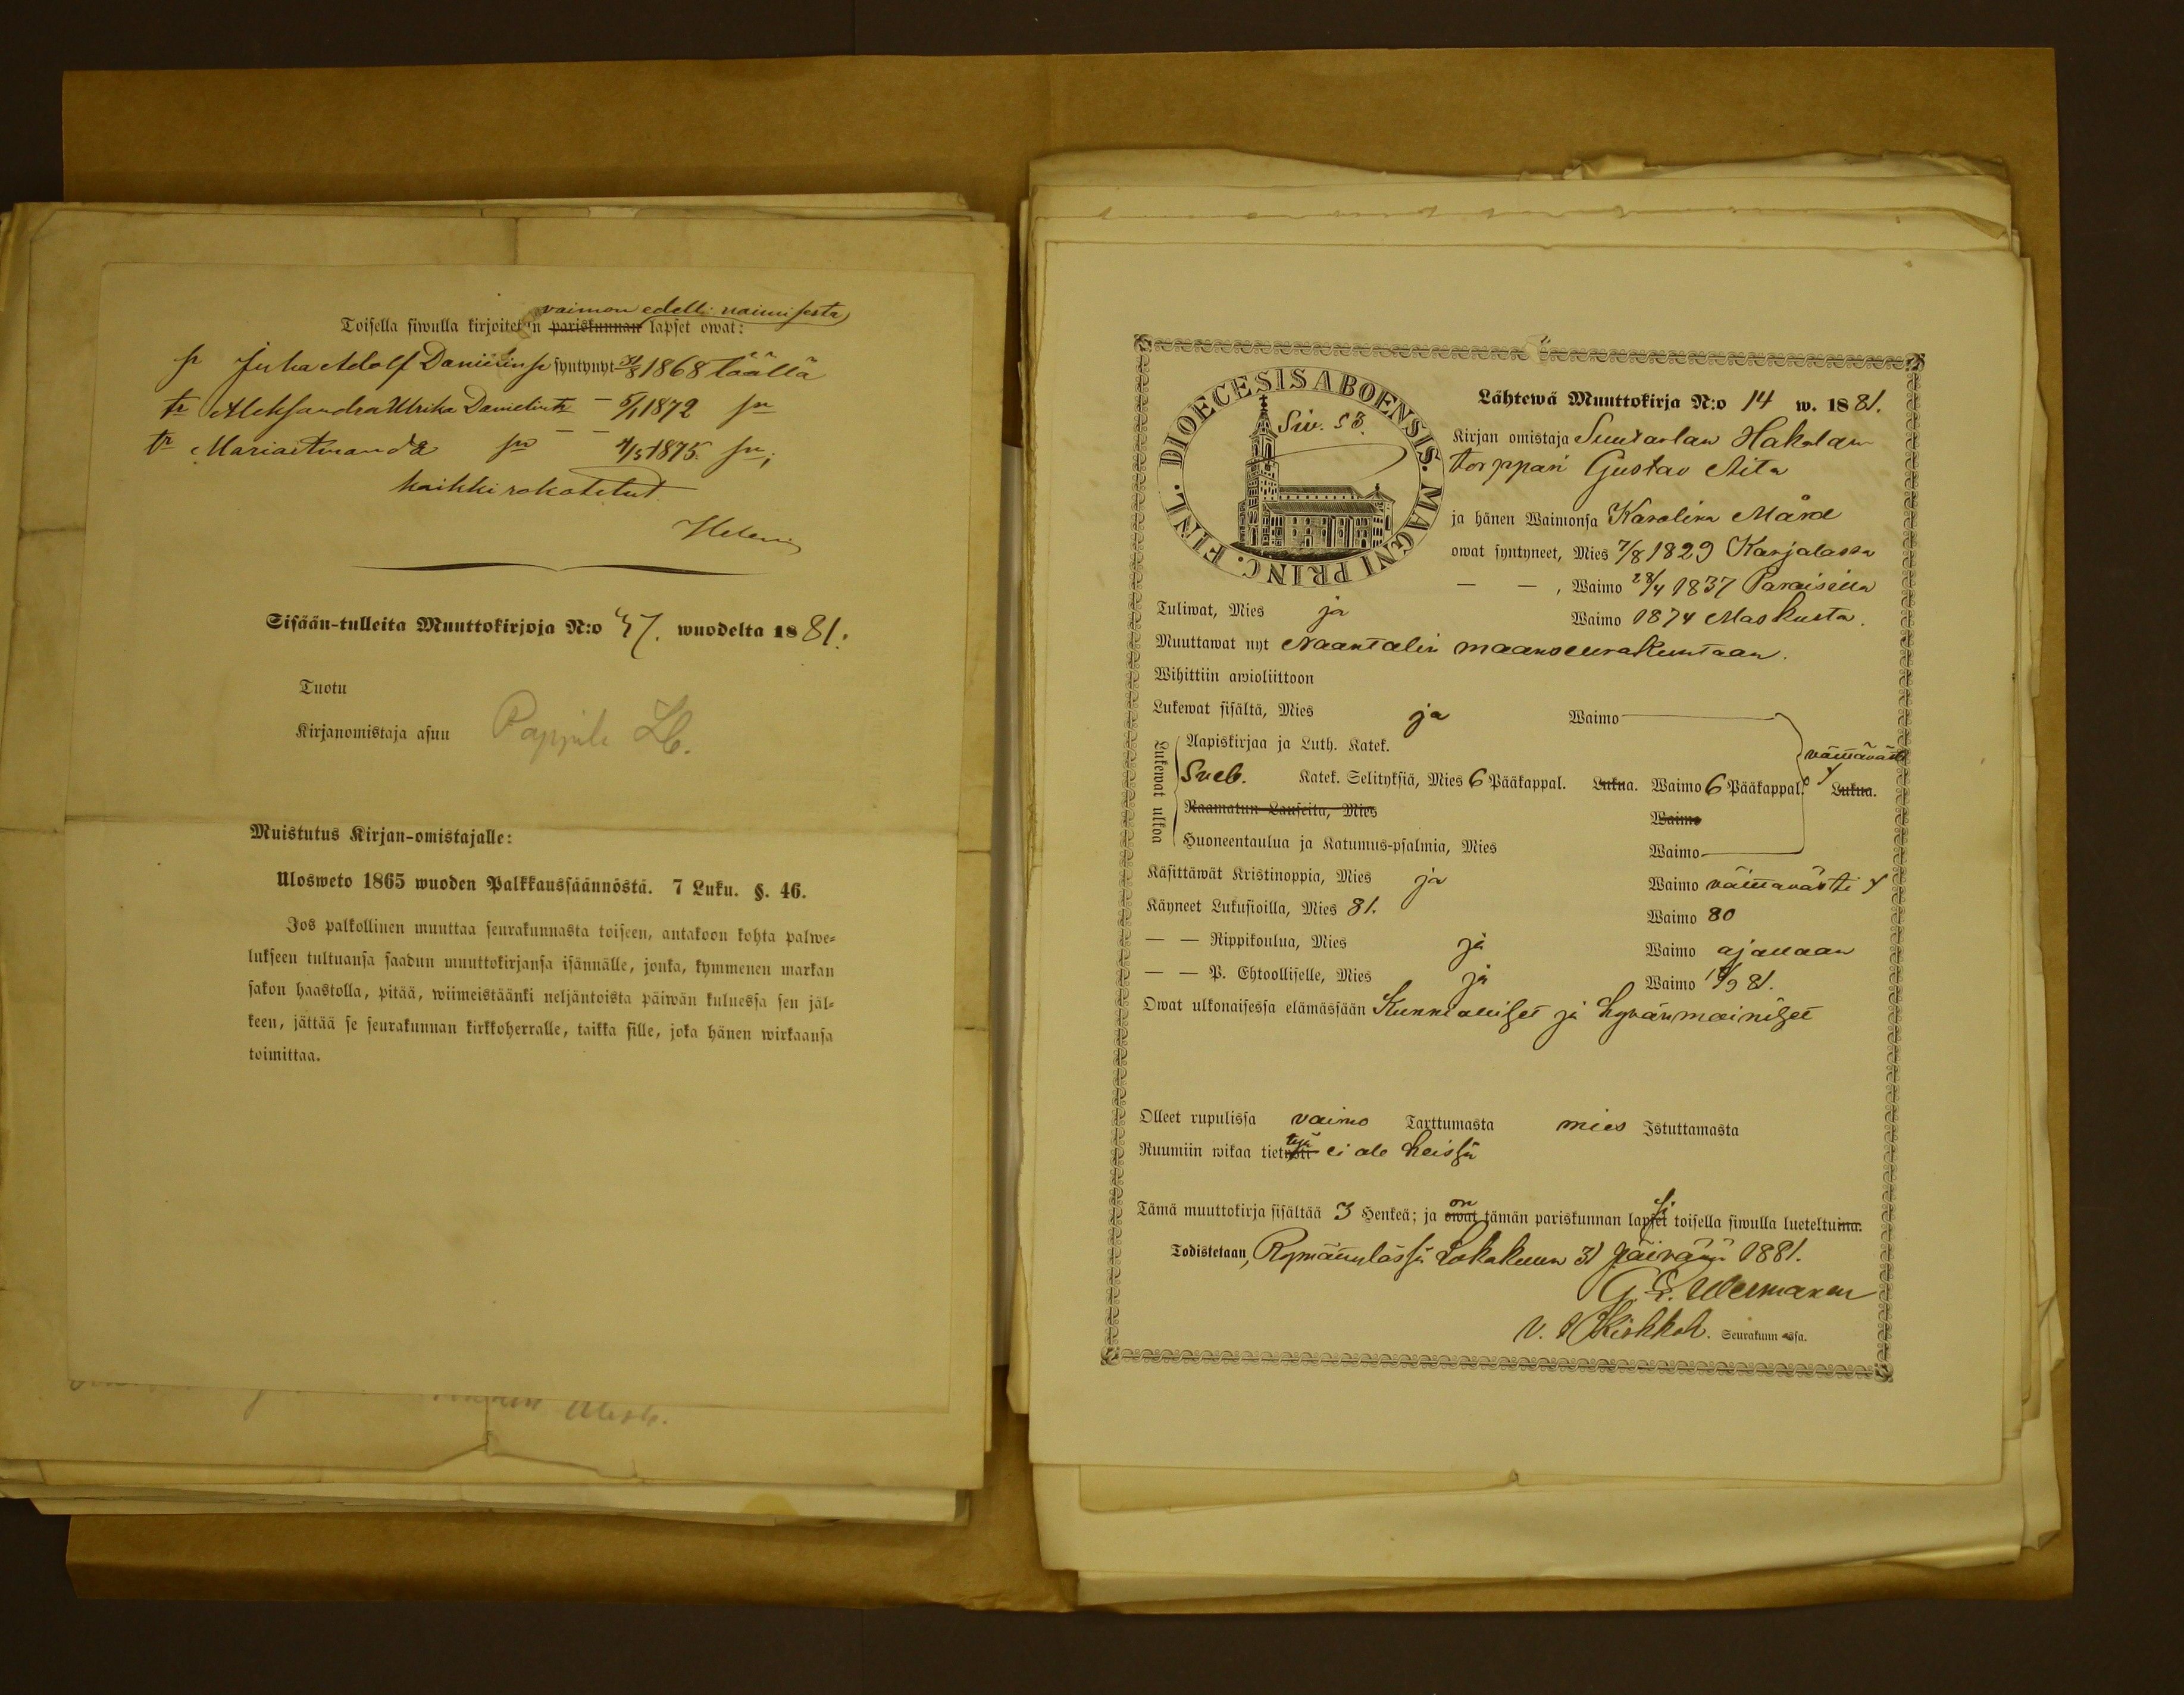 vaimon edell: naimisesta
Toisella siwulla kirjoitetun pariskunnan lapset owat:
p Juha Adolf Danielinp syntynyt 31/8 1868 täällä
tr Aleksandra Ulrika Danielintr — 5/1 1872 sn
tr Maria Amanda sn — — 4/5 1875. sn;
kaikki rokotetut.
Helenius
Sisään-tulleita Muuttokirjoja N:o 47. wuodelta 1881.
Tuotu
Kirjanomistaja asuu Pappila
Muistutus Kirjan-omistajalle:
Ulosweto 1865 wuoden Palkkaussäännöstä. 7 Luku. §. 46.
Jos palkollinen muuttaa seurakunnasta toiseen, antakoon kohta palwe-
lukseen tultuansa saadun muuttokirjansa isännälle, jonka, kymmenen markan
sakon haastolla, pitää, wiimeistäänki neljäntoista päiwän kuluessa sen jäl-
keen, jättää se seurakunnan kirkkoherralle, taikka sille, joka hänen wirkaansa
toimittaa.
DIOECESIS ABOENSIS. MAGNI PRINC. FINL.
Siv. 53.
Lähtewä Muuttokirja N:o 14 w. 1881.
Kirjan omistaja Suutarlan Hakalan
torppari Gustav Aita
ja hänen Waimonsa Karolina Mård
owat syntyneet, Mies 7/8 1829 Karjalassa
— — , Waimo 28/4 1837 Paraisilla
Tuliwat, Mies ja Waimo 1874 Maskusta.
Muuttawat nyt Naantalin maanseurakuntaan.
Wihittiin awioliittoon
Lukewat sisältä, Mies ja Waimo
Lukewat ulkoa
Aapiskirjaa ja Luth. Katek. välttävästi
Sveb. Katek. Selityksiä, Mies 6 Pääkappal. Lukua. Waimo 6 Pääkappal. Lukua.
Raamatun Lauseita, Mies Waimo
Huoneentaulua ja Katumus-psalmia, Mies Waimo
Käsittäwät Kristinoppia, Mies ja Waimo välttävästi
Käyneet Lukusioilla, Mies 81. Waimo 80
— — Rippikoulua, Mies ja Waimo ajallaan
— — P. Ehtoolliselle, Mies ja Waimo 18/9 81.
Owat ulkonaisessa elämässään Kunnialliset ja hyvänmainiset
Olleet rupulissa vaimo Tarttumasta mies Istuttamasta
Ruumiin wikaa tiettyä ei ole heissä
Tämä muuttokirja sisältää 3 Henkeä; ja on owat tämän pariskunnan lapset toisella siwulla lueteltuina.
Todistetaan, Rymättylässä Lokakuun 31 päivänä 1881.
G. E.
v. Kirkkoh. Seurakunnassa.